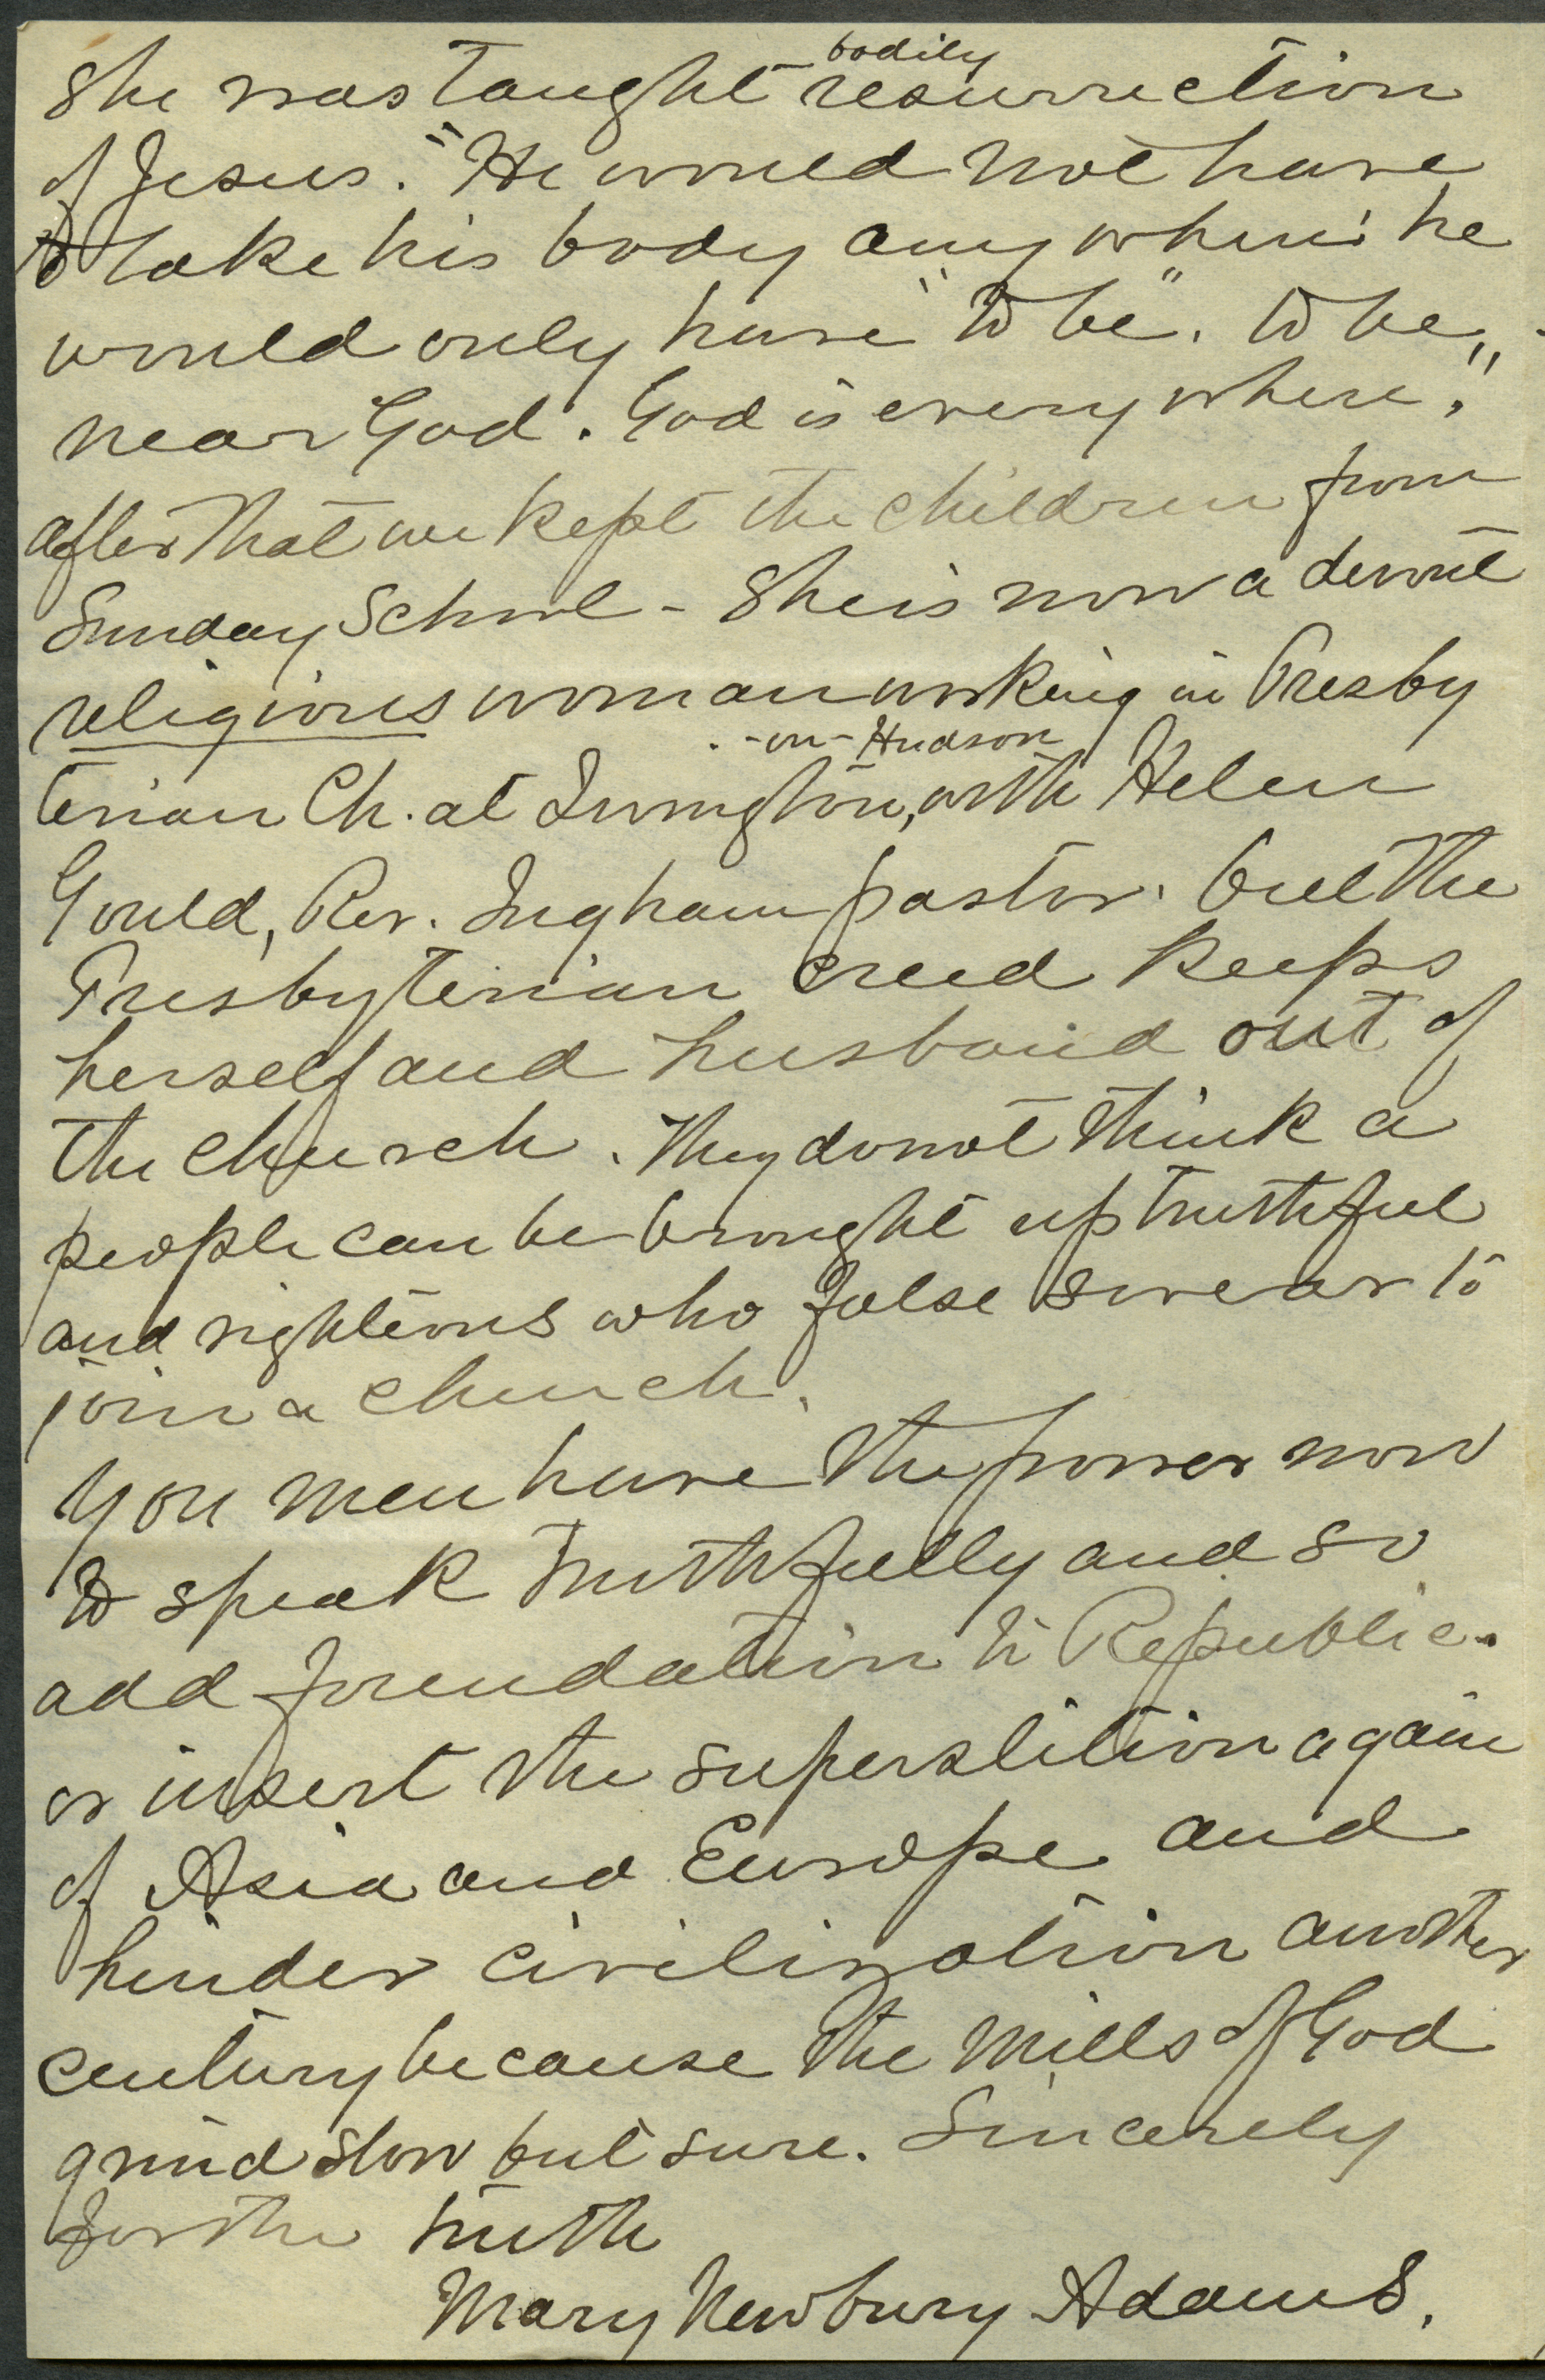 bodily
She was taught resurrection
of Jesus. "He would not have
to take his body anywhere: he
would only have "to be". to be,
near God. God is everywhere."
after that we kept the children from
Sunday School - She is now a devout
religious woman working in Presby
-on-Hudson
terian Ch. at Irvington, with Helen
Gould, Rev. Ingham pastor. but the
Presbyterian creed keeps
herself and husband out of
the church. They do not think a
people can be brought up truthful
and righteous who false swear to
join a church.
You men have the power now
to speak truthfully and so
add foundation to Republic.
or insert the superstition again
of Asia and Europe and
hinder civilization another
century because the Mills of God
grind slow but sure. Sincerely
for the truth
Mary Newbury Adams.